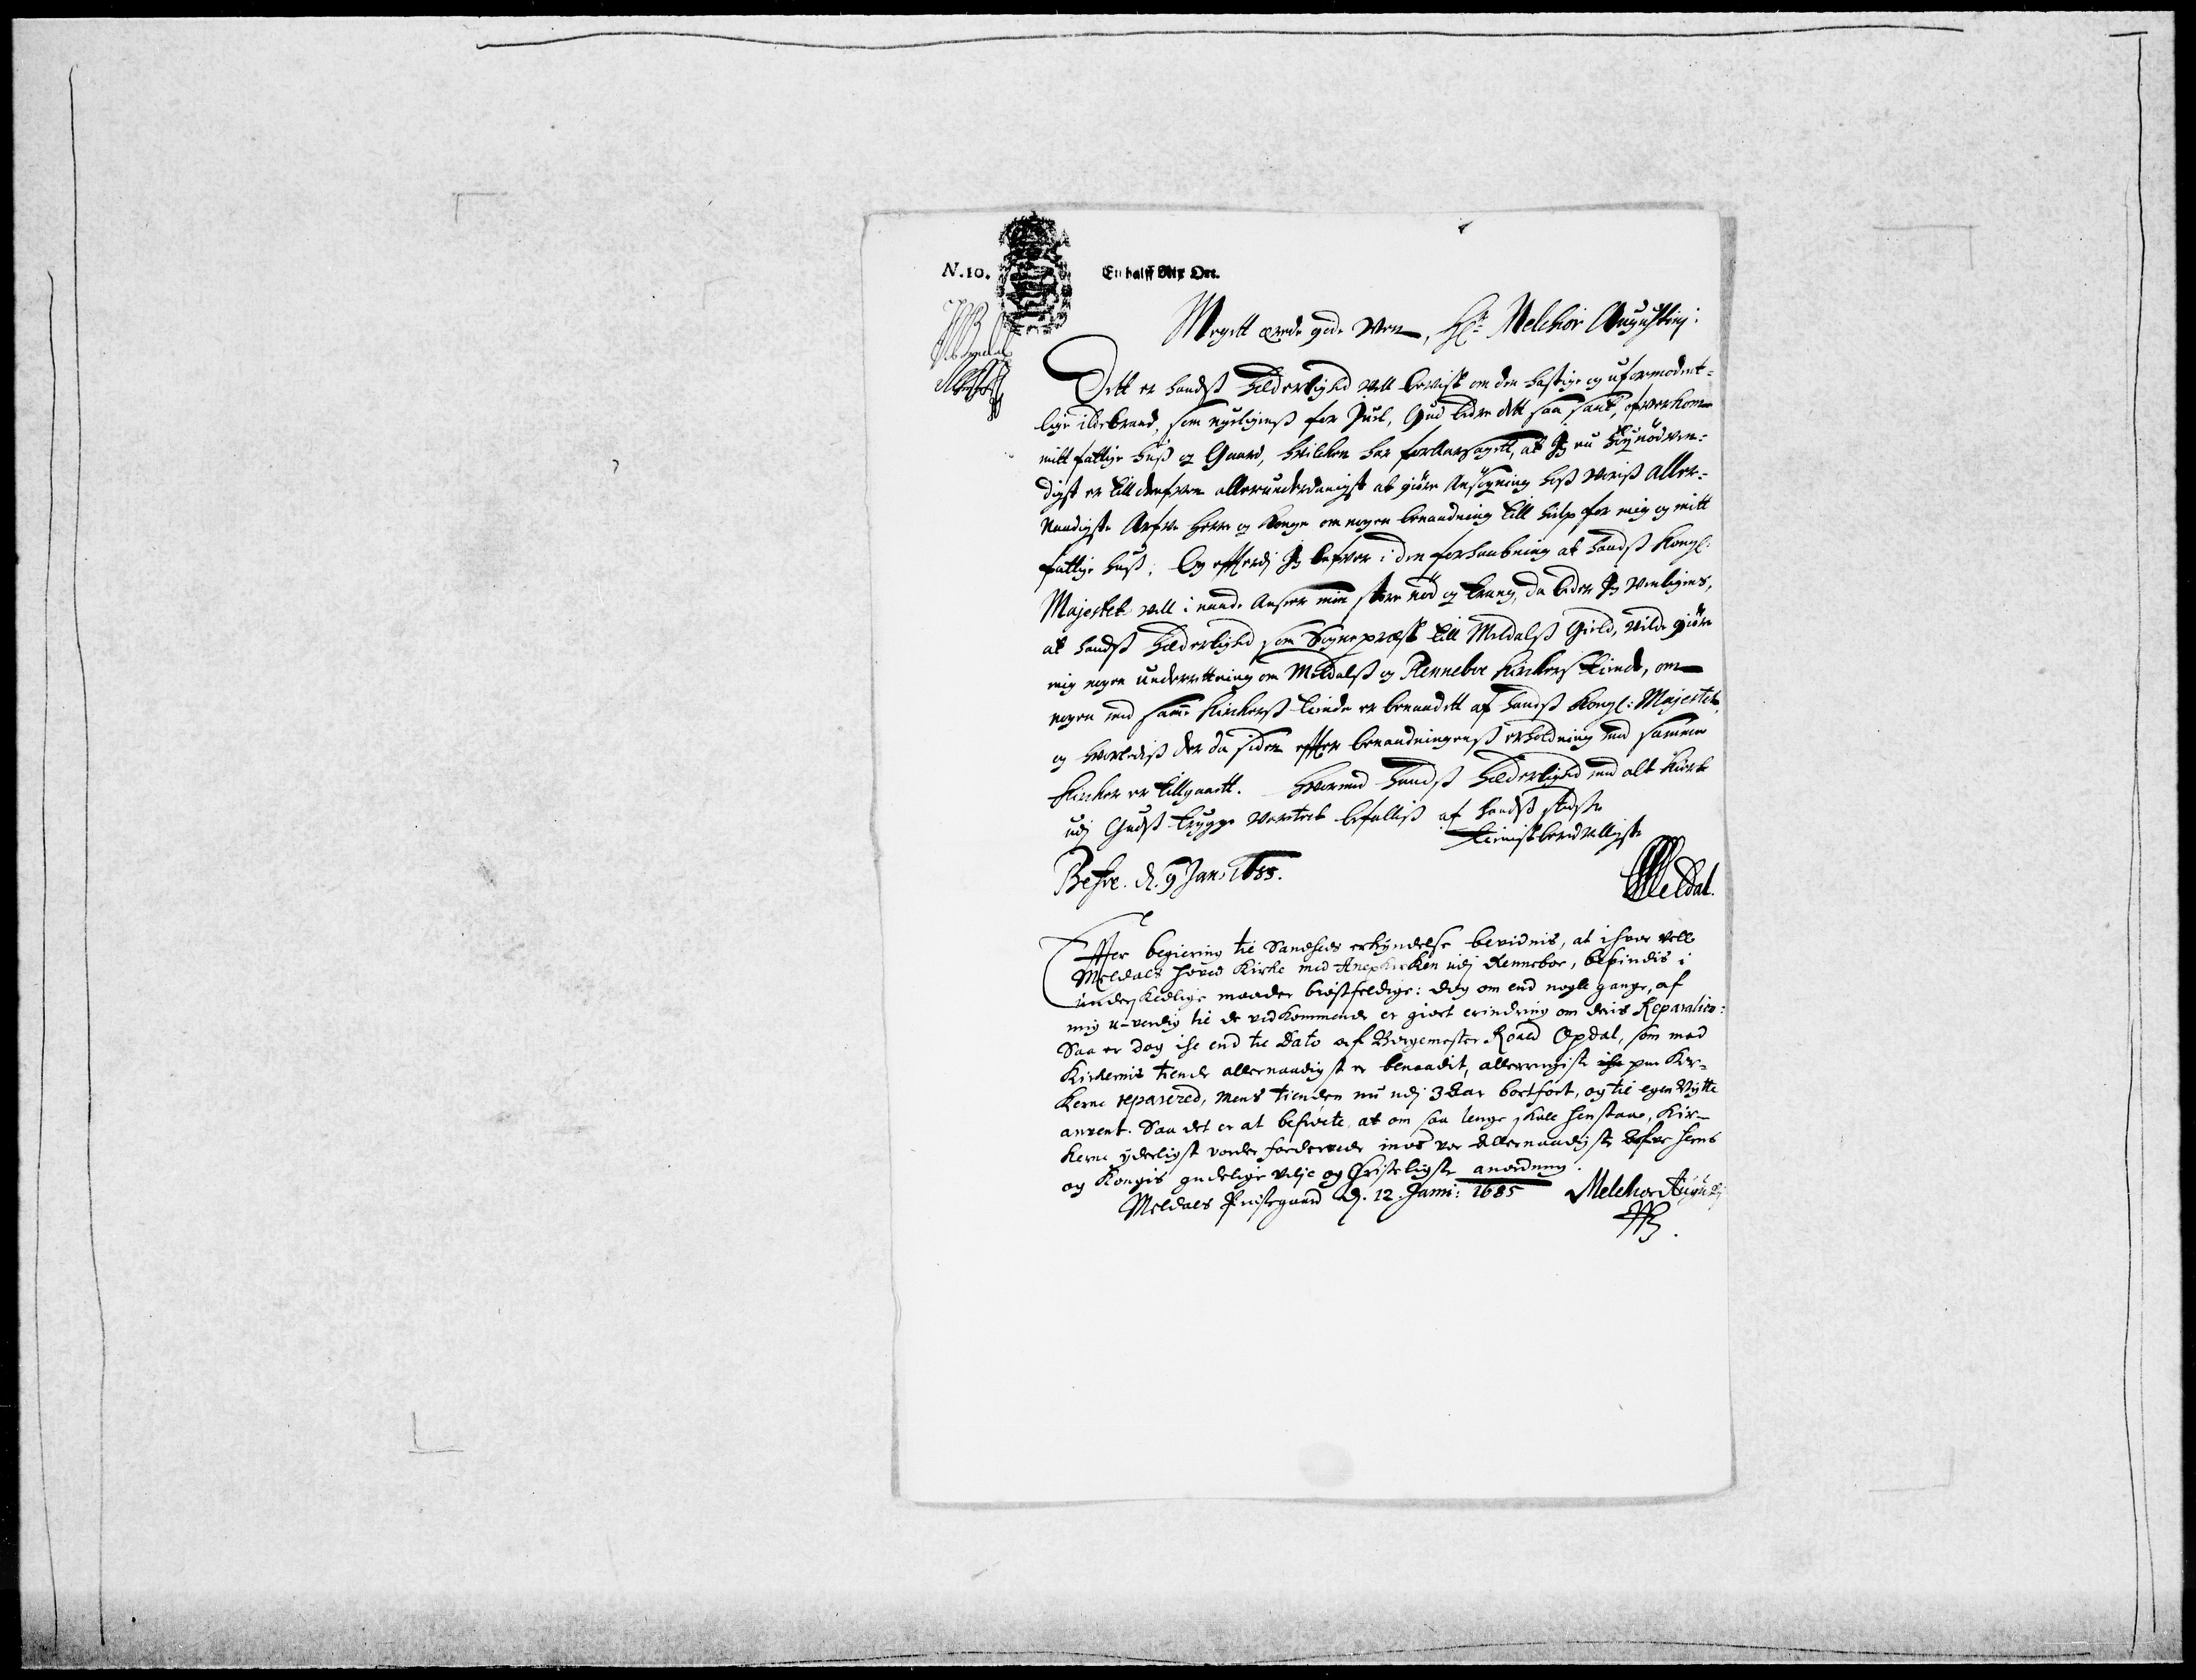 N. 10.
En halff Rix Ort.
Megitt ærede gode Ven, Hr: Melchior Augustinj:
Dett er hands Hæderlighed vell bevist om den hastige og uformodent-
lige ildebrand, som nyeligens for Juel, Gud bedre dett saa sant, ofverkom
mitt fattige huus og Gaard, hvilchen har foraarsagett, at Jeg nu høynødven-
digst er till allerunderdanigst at giøre Ansøgning hos voris Aller-
Naadigste Arfve herre og Konge om nogen benaadning till hielp for mig og mitt
fattige huus. Og efftterdj Jeg lefver i den forhaabning at hands Kongl:
Majestet vill i naade Ansee min store nød og trang, da beder Jeg venligens,
at hands Hæderlighed som Sognepræst till Meldals Gield, vilde giøre
mig nogen underrettning om Meldals og Renneboe Kirkers tiende, om
nogen med samme Kirkers tiende er benaadett af hands Kongl: Majestet,
og hvorledis der da siden effter benaadningens erholdning med samme
Kircker er tillgaaett. Hvormed hands Hæderlighed med alt kiert
udj Guds trygge Varetect befallis af hands stedse
tienistberedvilligste
d. 9 Jan: 1685.
Meldal.
Effter begiering til Sandheds erkyndelse bevidnis, at ihvor vell
Meldals hoved Kirke med Anexkirken udj Renneboe, befindis i
underskedlige maader brøstfeldige: dog om end nogle gange, af
mig u-verdig til de vedkommende er giort erindring om deris Reparation:
Saa er dog iche end til Dato af Borgemester Roald Opdal, som med
Kirkernis tiende allernaadigst er benaadit, allerringiste iche paa Kir-
kerne reparered, mens tienden nu udj 3 Aar bortført, og til egen Nytte
anvent. Saa det er at befrøcte, at om saa lenge skall henstaae, Kir-
kerne yderligst vorder forderfvede imod vor Allernaadigste Arfve herris
og Kongis gudelige velje og Christeligste anordning.
Meldals Prestegaard d. 12. Janu: 1685 Melchior Augustinj